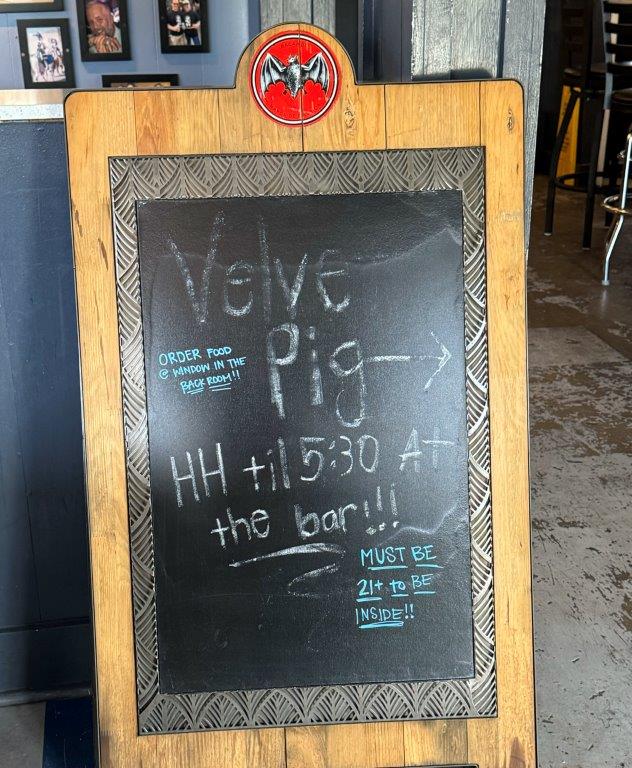 Velve
Pig →
ORDER FOOD
@ WINDOW IN THE
BACK ROOM!!
HH til 5:30 At
the bar!!!
MUST BE
21+ to BE
INSIDE!!